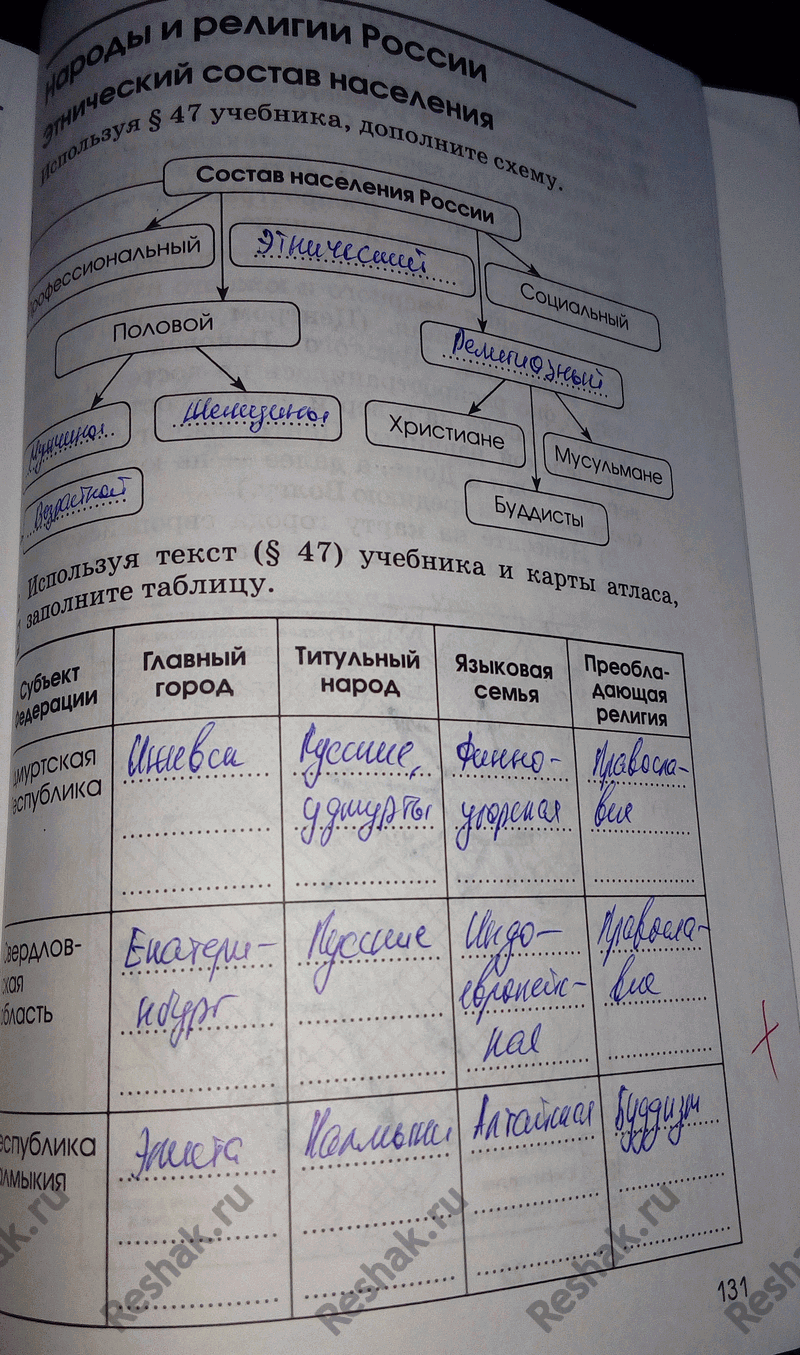 Народы и религии России
Этнический состав населения
Используя § 47 учебника, дополните схему.
Состав населения России
рофессиональный
Этнический
Социальный
Половой
Религиозный
Мужчины
Женщины
Христиане
Мусульмане
Возрастной
Буддисты
Используя текст (§ 47) учебника и карты атласа,
заполните таблицу.
Субъект
Федерации
Главный
город
Титульный
народ
Языковая
семья
Преобла-
дающая
религия
дмуртская
еспублика
Ижевск
Русские,
удмурты
Финно-
угорская
Правосла-
вие
Свердлов-
ская
бласть
Екатери-
нбург
Русские
Индо-
европейс-
кая
Правосла-
вие
еспублика
алмыкия
Элиста
Калмыки
Алтайская
Буддизм
131
shak.ru
Reshak.ru
Reshak.ru
Reshak.ru
Resh